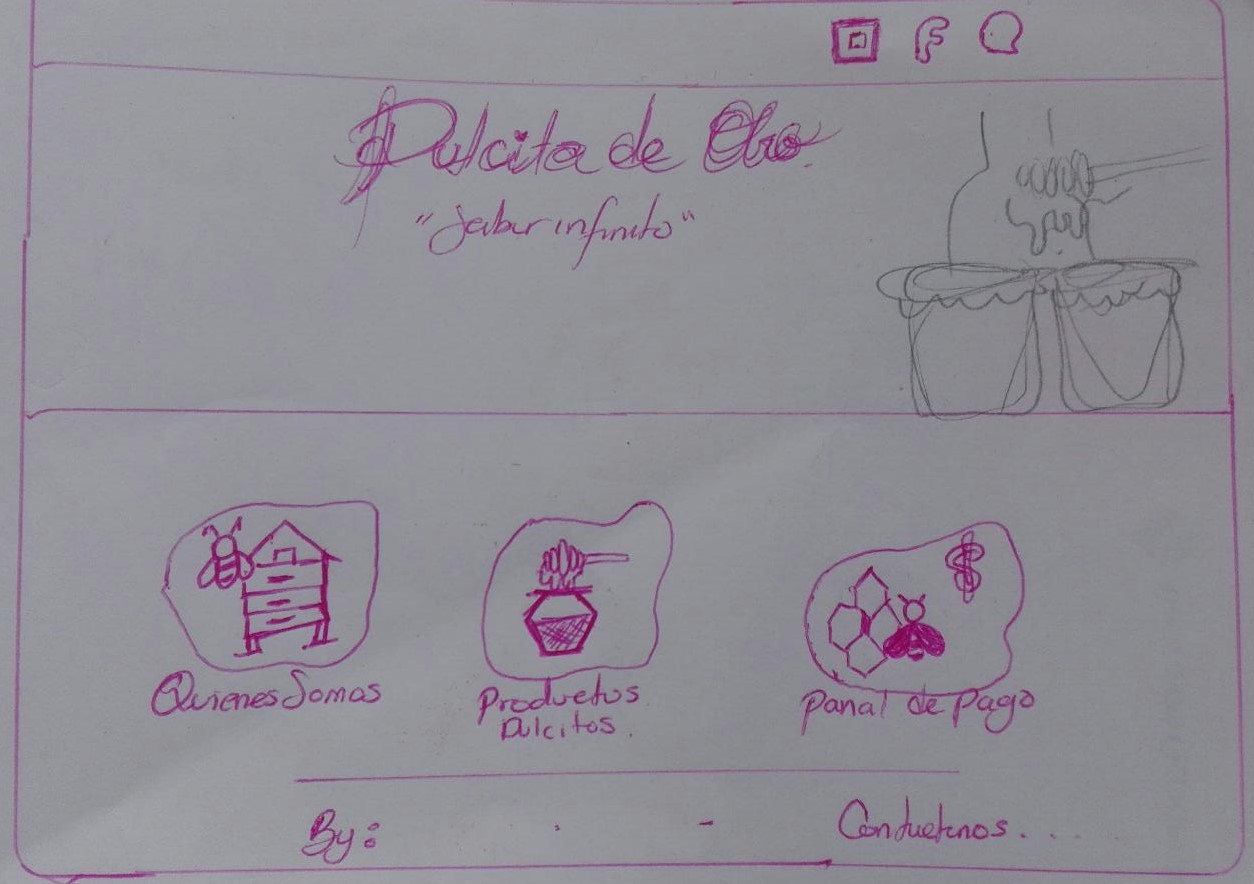 F
Dulcita de Oro
"Sabor infinito"
$
Quienes Somos
Productos
Dulcitos.
Panal de Pago
By: . -
Contuctenos....